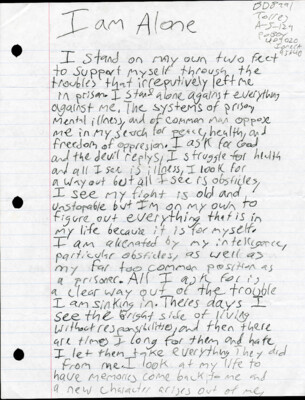 I am Alone
BD8791
I stand on may own two feet
to support myself through the
troubles that irreputively left me
in prison. I stand alone against everything
against me. The systems of prison,
mental illness, and of common man oppose
me in my search for peace, health, and
freedom of oppresion. I ask for God
and the devil replys, I struggle for health
and all I see is illness, I look for
a way out but all I see is obsticles,
I see my fight is old and
unstopable but I'm on my own to
figure out everything that is in
my life because it is for myself.
I am alienated by my intelligence,
particular obsticles, as well as
my far too common position as
a prisoner. All I ask for is
a clear way out of the trouble
I am sinking in. Theres days I
see the bright side of living
without responsibilities, and then there
are times I long for them and hate
I let them take everything they did
from me. I look at my life to
have memories come back to me and
a new character arises out of me,